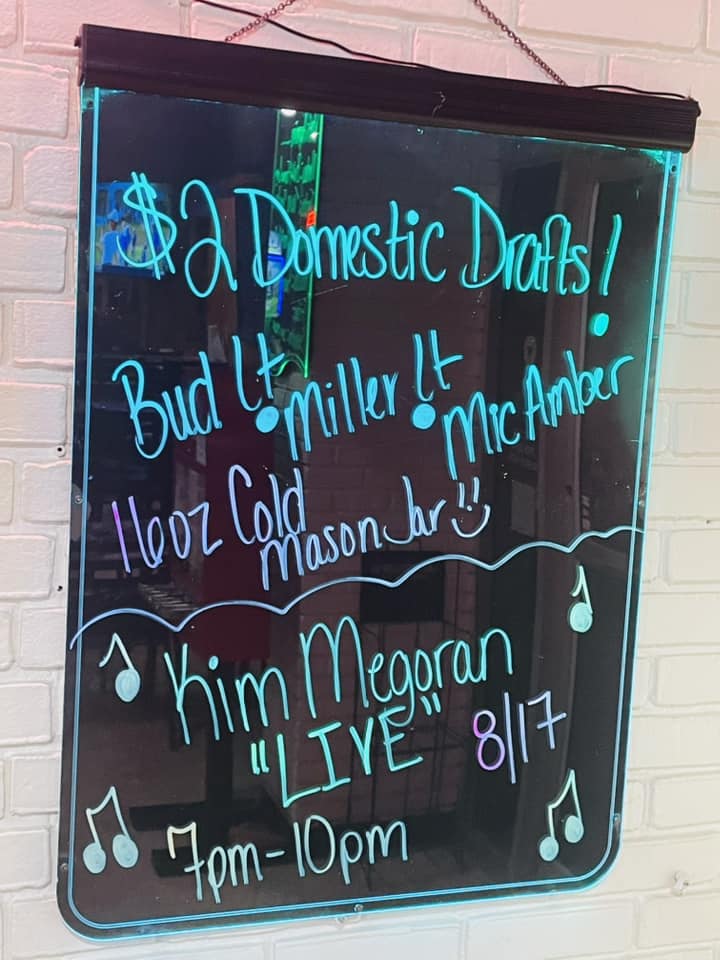 $2 Domestic Drafts!
Bud Lt • Miller Lt • Mic Amber
16oz Cold
Mason Jar
Kim Megoran
"LIVE" 8/17
7pm-10pm